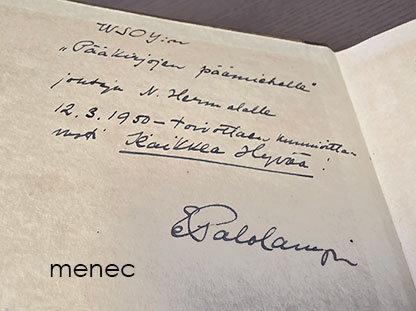 WSOY:on
„Pääkirjojen päämiehelle"
johtaja N. Hermalalle
12.3.1950 – toivottaen kunnioitta-
vasti Kaikkea Hyvää!
E Palolampi
menec